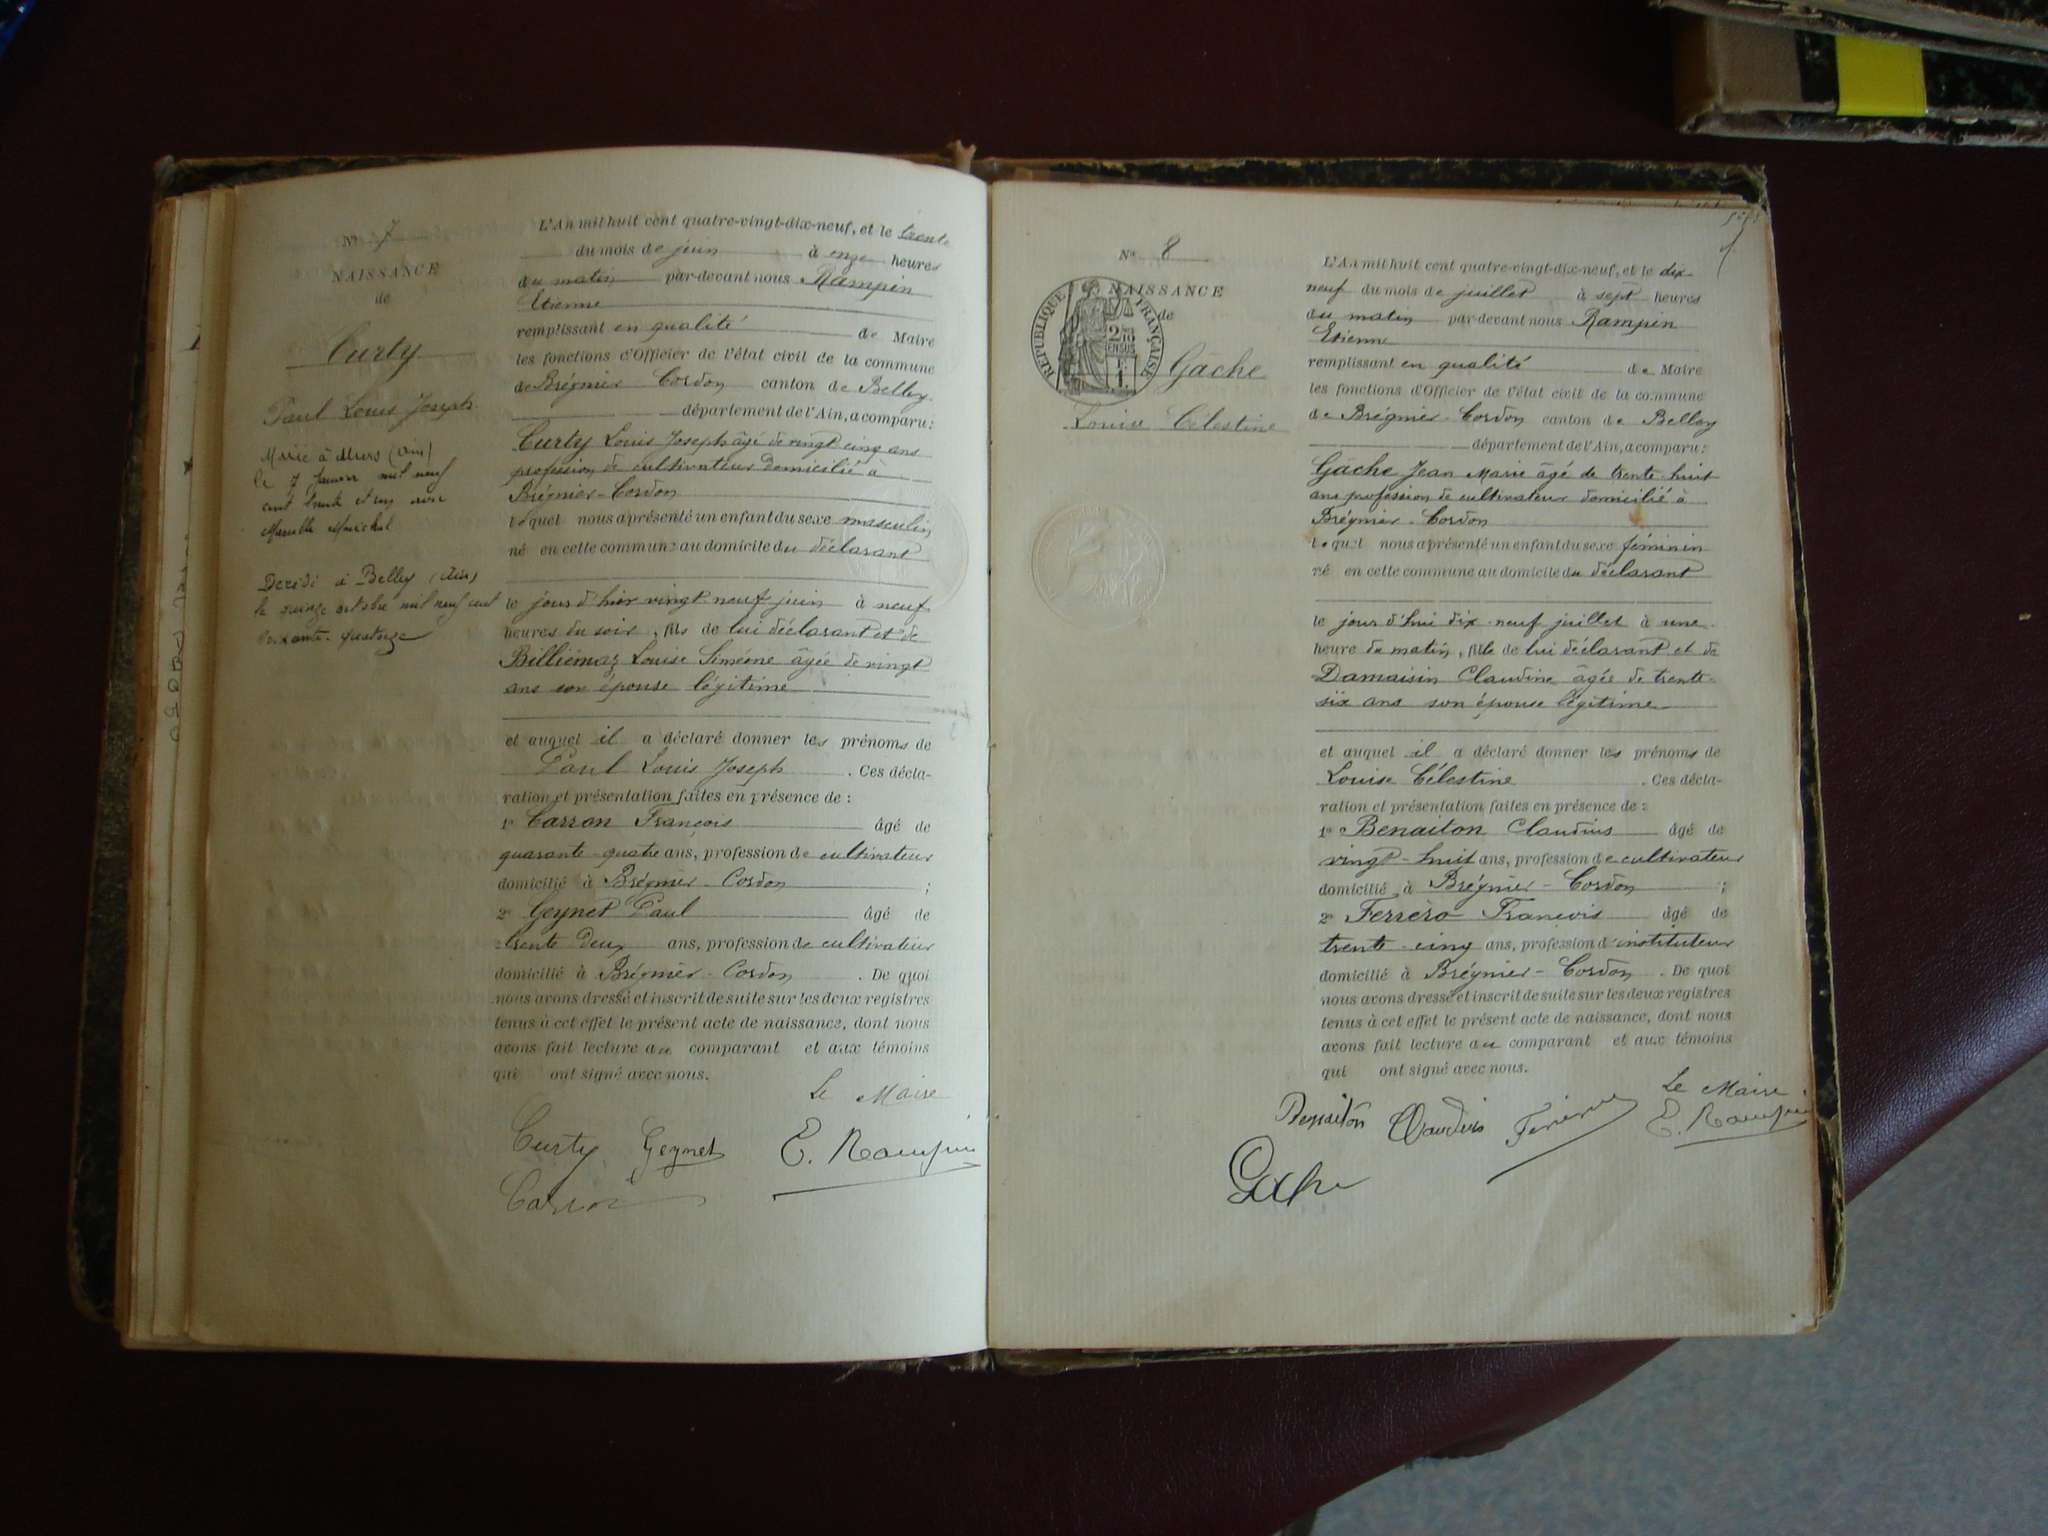 N° 7
NAISSANCE
de
Curty
Paul Louis Joseph
Marié à Murs (Ain)
le 7 Janvier mil neuf
cent trente et un avec
Marcelle Maréchal
Décédé à Belley (Ain)
le quinze octobre mil neuf cent
soixante-quatorze
L'An mil huit cent quatre-vingt-dix-neuf, et le trente
du mois de juin à onze heures
du matin par-devant nous Rampin
Etienne
remplissant en qualité de Maire
les fonctions d'Officier de l'état civil de la commune
de Brégnier Cordon canton de Belley
département de l'Ain, a comparu :
Curty Louis Joseph âgé de vingt cinq ans
profession de cultivateur domicilié à
Brégnier-Cordon
lequel nous a présenté un enfant du sexe masculin
né en cette commune au domicile du déclarant
le jour d'hier vingt-neuf juin à neuf
heures du soir, fils de lui déclarant et de
Billiémaz Louise Siméone âgée de vingt
ans son épouse légitime
et auquel il a déclaré donner les prénoms de
Paul Louis Joseph . Ces décla-
ration et présentation faites en présence de :
1° Carron François âgé de
quarante-quatre ans, profession de cultivateur
domicilié à Brégnier-Cordon ;
2° Geynet Paul âgé de
trente deux ans, profession de cultivateur
domicilié à Brégnier-Cordon . De quoi
nous avons dressé et inscrit de suite sur les deux registres
tenus à cet effet le présent acte de naissance, dont nous
avons fait lecture au comparant et aux témoins
qui ont signé avec nous.
Le Maire
Curty Geynet E. Rampin
Carron
N° 8
NAISSANCE
de
RÉPUBLIQUE FRANÇAISE
2/10 EN SUS
F.
1.
Gâche
Louise Célestine
L'An mil huit cent quatre-vingt-dix-neuf, et le dix-
neuf du mois de juillet à sept heures
du matin par-devant nous Rampin
Etienne
remplissant en qualité de Maire
les fonctions d'Officier de l'état civil de la commune
de Brégnier-Cordon canton de Belley
département de l'Ain, a comparu :
Gâche Jean Marie âgé de trente-huit
ans profession de cultivateur domicilié à
Brégnier-Cordon
lequel nous a présenté un enfant du sexe féminin
né en cette commune au domicile du déclarant
le jour d'hui dix-neuf juillet à une
heure du matin, fille de lui déclarant et de
Damaisin Claudine âgée de trente-
six ans son épouse légitime
et auquel il a déclaré donner les prénoms de
Louise Célestine . Ces décla-
ration et présentation faites en présence de :
1° Benaiton Claudius âgé de
vingt-huit ans, profession de cultivateur
domicilié à Brégnier-Cordon ;
2° Ferrero François âgé de
trente-cinq ans, profession d'instituteur
domicilié à Brégnier-Cordon . De quoi
nous avons dressé et inscrit de suite sur les deux registres
tenus à cet effet le présent acte de naissance, dont nous
avons fait lecture au comparant et aux témoins
qui ont signé avec nous.
Le Maire
Claudius E. Rampin
Gâche